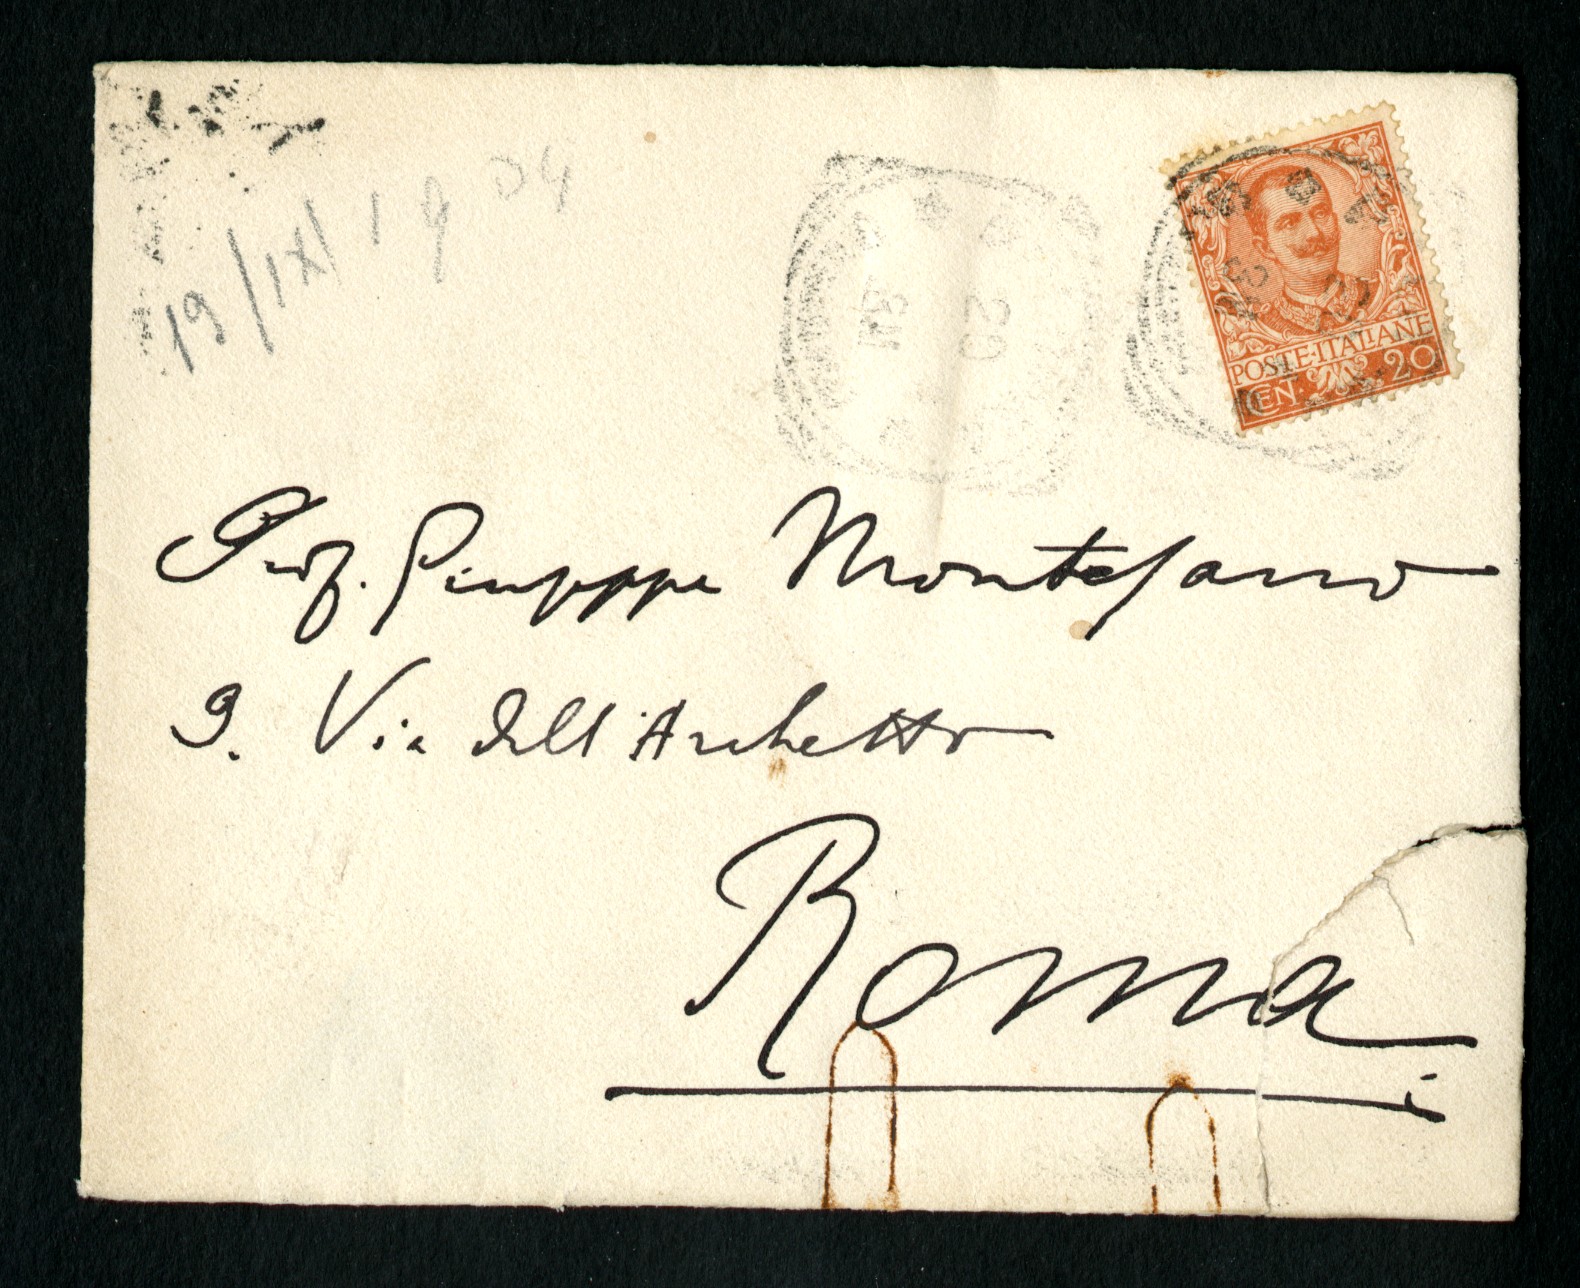 19/IX/1904
POSTE·ITALIANE
CEN. 20
Prof. Giuseppe Montesano
9. Via dell'Archetto
Roma